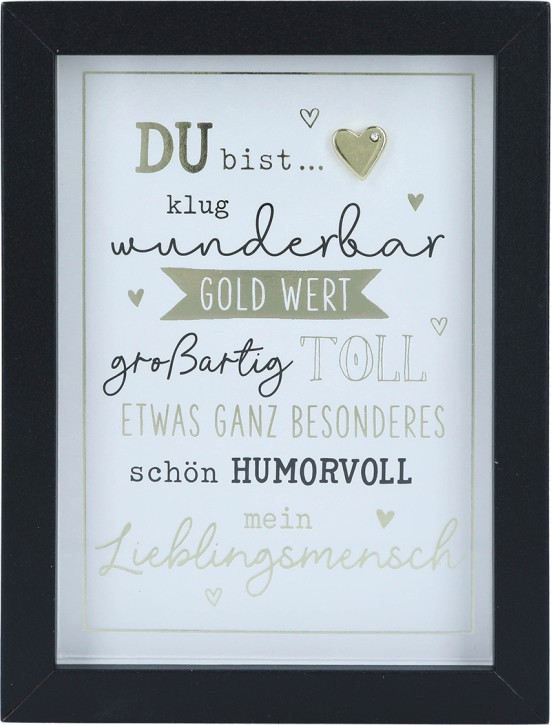 DU bist...
klug
wunderbar
GOLD WERT
großartig TOLL
ETWAS GANZ BESONDERES
schön HUMORVOLL
mein
Lieblingsmensch